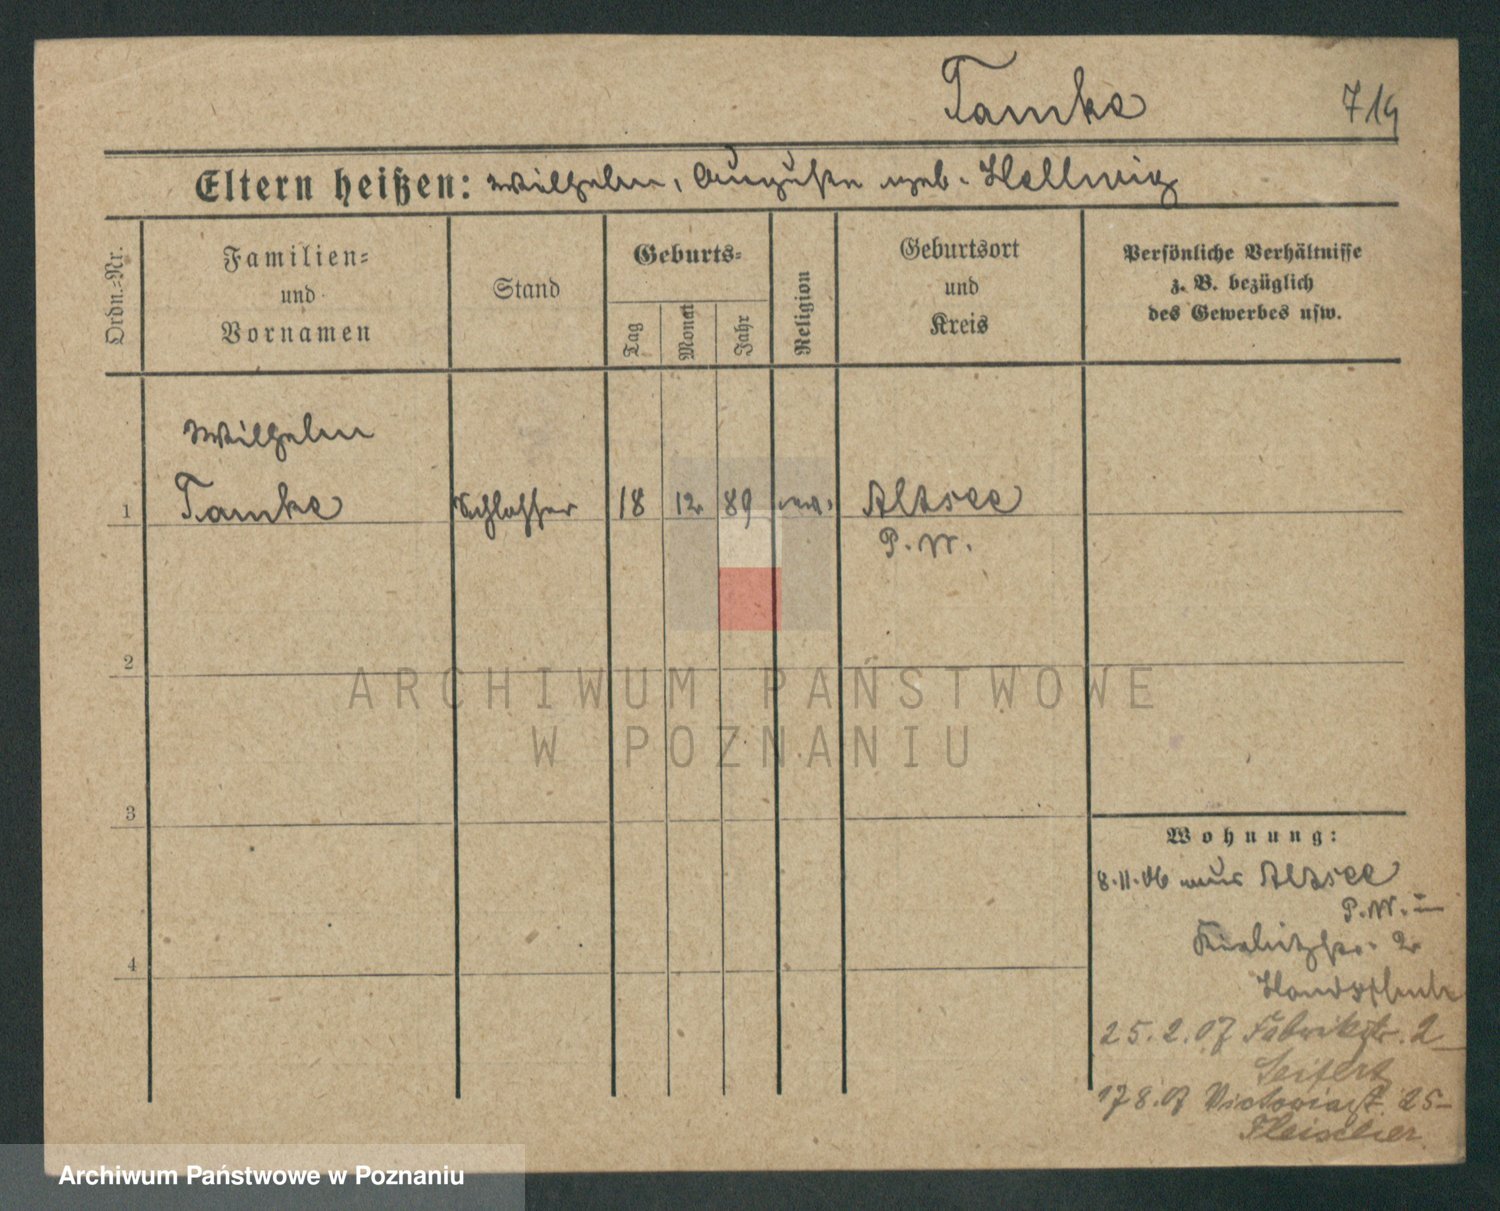 Tamke
719
Eltern heißen: Wilhelm, Auguste geb. Hellwig
Ordn.-Nr.
Familien-
und
Vornamen
Stand
Geburts-
Tag
Monat
Jahr
Religion
Geburtsort
und
Kreis
Persönliche Verhältnisse
z. B. bezüglich
des Gewerbes usw.
Wilhelm
1 Tamke Schlosser 18 12 89 ev. Altsee
P. W.
2
3
4
Wohnung:
8.11.06 aus Altsee
P. W. –
25.2.07 Fabrikstr. 2
Seifert
17 8.07 Victoriast. 25-
Fleischer
ARCHIWUM PAŃSTWOWE
W POZNANIU
Archiwum Państwowe w Poznaniu